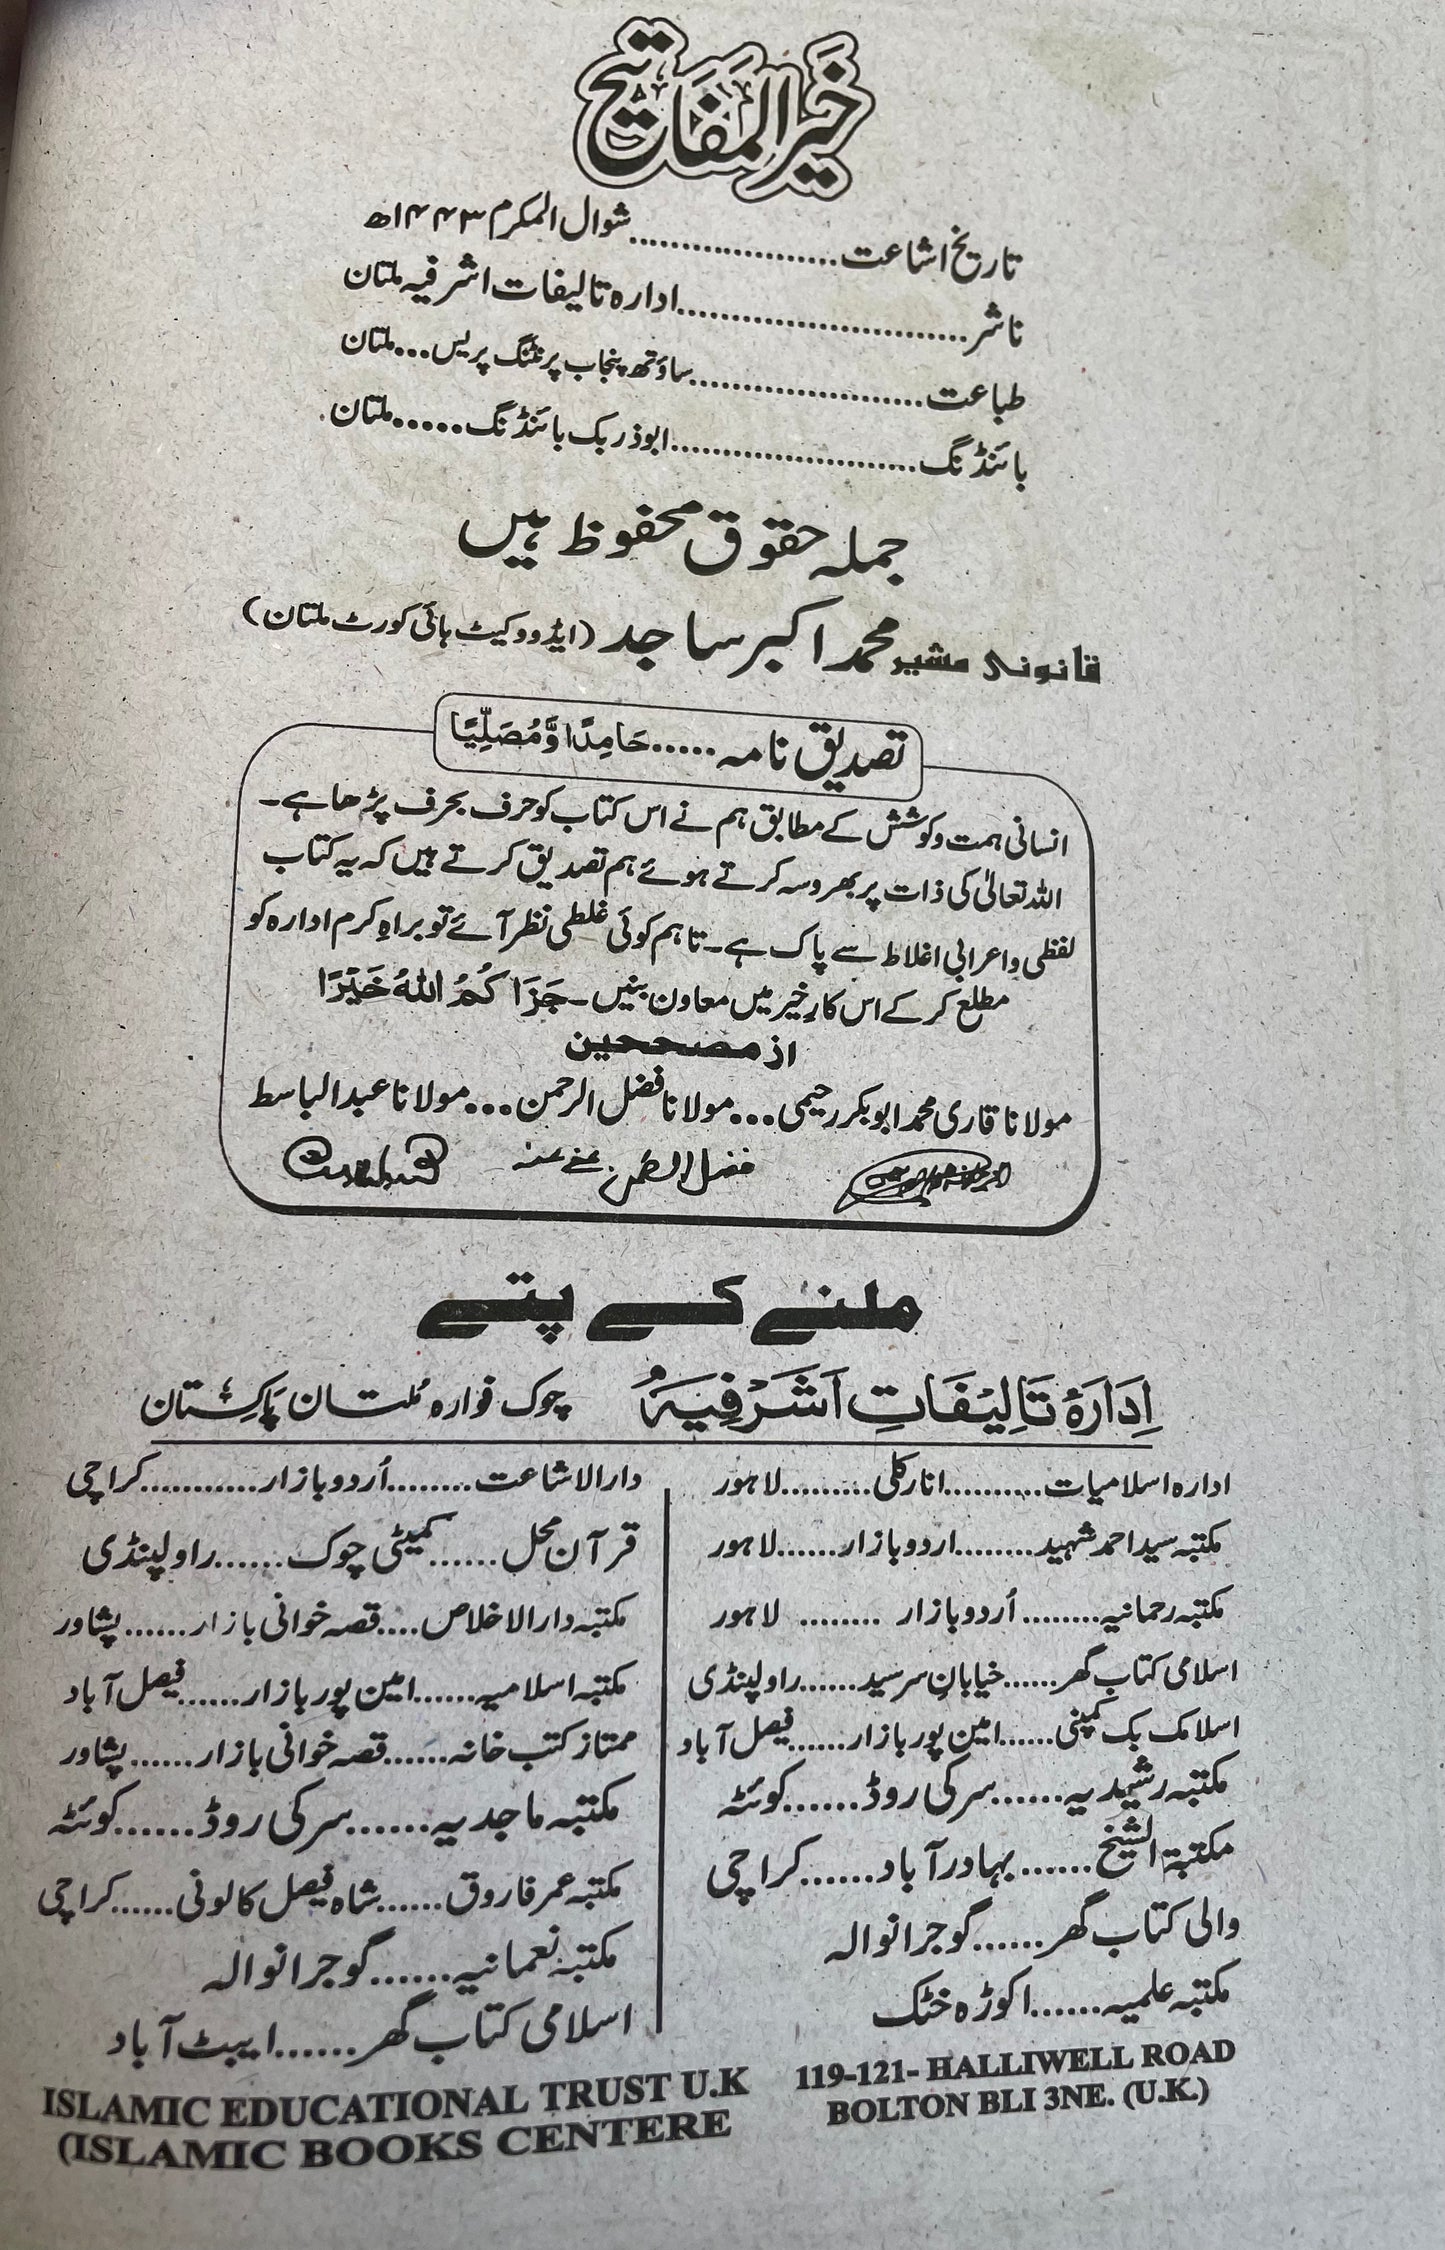 خَیرُ المَفَاتِیح
تاریخ اشاعت....................شوال المکرم ۱۴۴۳ھ
ناشر............................ادارہ تالیفات اشرفیہ ملتان
طباعت.......................ساؤتھ پنجاب پرنٹنگ پریس...ملتان
بائنڈنگ........................ابوذر بک بائنڈنگ.....ملتان.
جملہ حقوق محفوظ ہیں
قانونی مشیر محمد اکبر ساجد (ایڈووکیٹ ہائی کورٹ ملتان)
تصدیق نامہ.....حَامِدًا وَّمُصَلِّیًا
انسانی ہمت و کوشش کے مطابق ہم نے اس کتاب کو حرف بحرف پڑھا ہے۔
اللہ تعالیٰ کی ذات پر بھروسہ کرتے ہوئے ہم تصدیق کرتے ہیں کہ یہ کتاب
لفظی و اعرابی اغلاط سے پاک ہے۔ تاہم کوئی غلطی نظر آئے تو براہِ کرم ادارہ کو
مطلع کر کے اس کارِ خیر میں معاون بنیں۔ جَزَاکُمُ اللہُ خَیْرًا
از مصححین
مولانا قاری محمد ابوبکر رحیمی...مولانا فضل الرحمن...مولانا عبدالباسط
فضل الرحمن عفی عنہ
ملنے کے پتے
اِدَارَۂ تَالِیْفَاتِ اَشْرَفِیَہ چوک فوارہ مُلتان پَاکِستان
ادارہ اسلامیات..........انارکلی.........لاہور
مکتبہ سید احمد شہید........اردو بازار......لاہور
مکتبہ رحمانیہ........اُردو بازار ........ لاہور
اسلامی کتاب گھر......خیابانِ سرسید......راولپنڈی
اسلامک بک کمپنی......امین پور بازار......فیصل آباد
مکتبہ رشیدیہ......سرکی روڈ......کوئٹہ
مکتبۃ الشیخ......بہادر آباد......کراچی
والی کتاب گھر......گوجرانوالہ
مکتبہ علمیہ......اکوڑہ خٹک
دارالاشاعت........اُردو بازار...........کراچی
قرآن محل......کمیٹی چوک......راولپنڈی
مکتبہ دارالاخلاص....قصہ خوانی بازار......پشاور
مکتبہ اسلامیہ......امین پور بازار......فیصل آباد
ممتاز کتب خانہ......قصہ خوانی بازار......پشاور
مکتبہ ماجدیہ......سرکی روڈ......کوئٹہ
مکتبہ عمر فاروق......شاہ فیصل کالونی......کراچی
مکتبہ نعمانیہ......گوجرانوالہ
اسلامی کتاب گھر......ایبٹ آباد
ISLAMIC EDUCATIONAL TRUST U.K
(ISLAMIC BOOKS CENTERE
119-121- HALLIWELL ROAD
BOLTON BLI 3NE. (U.K.)